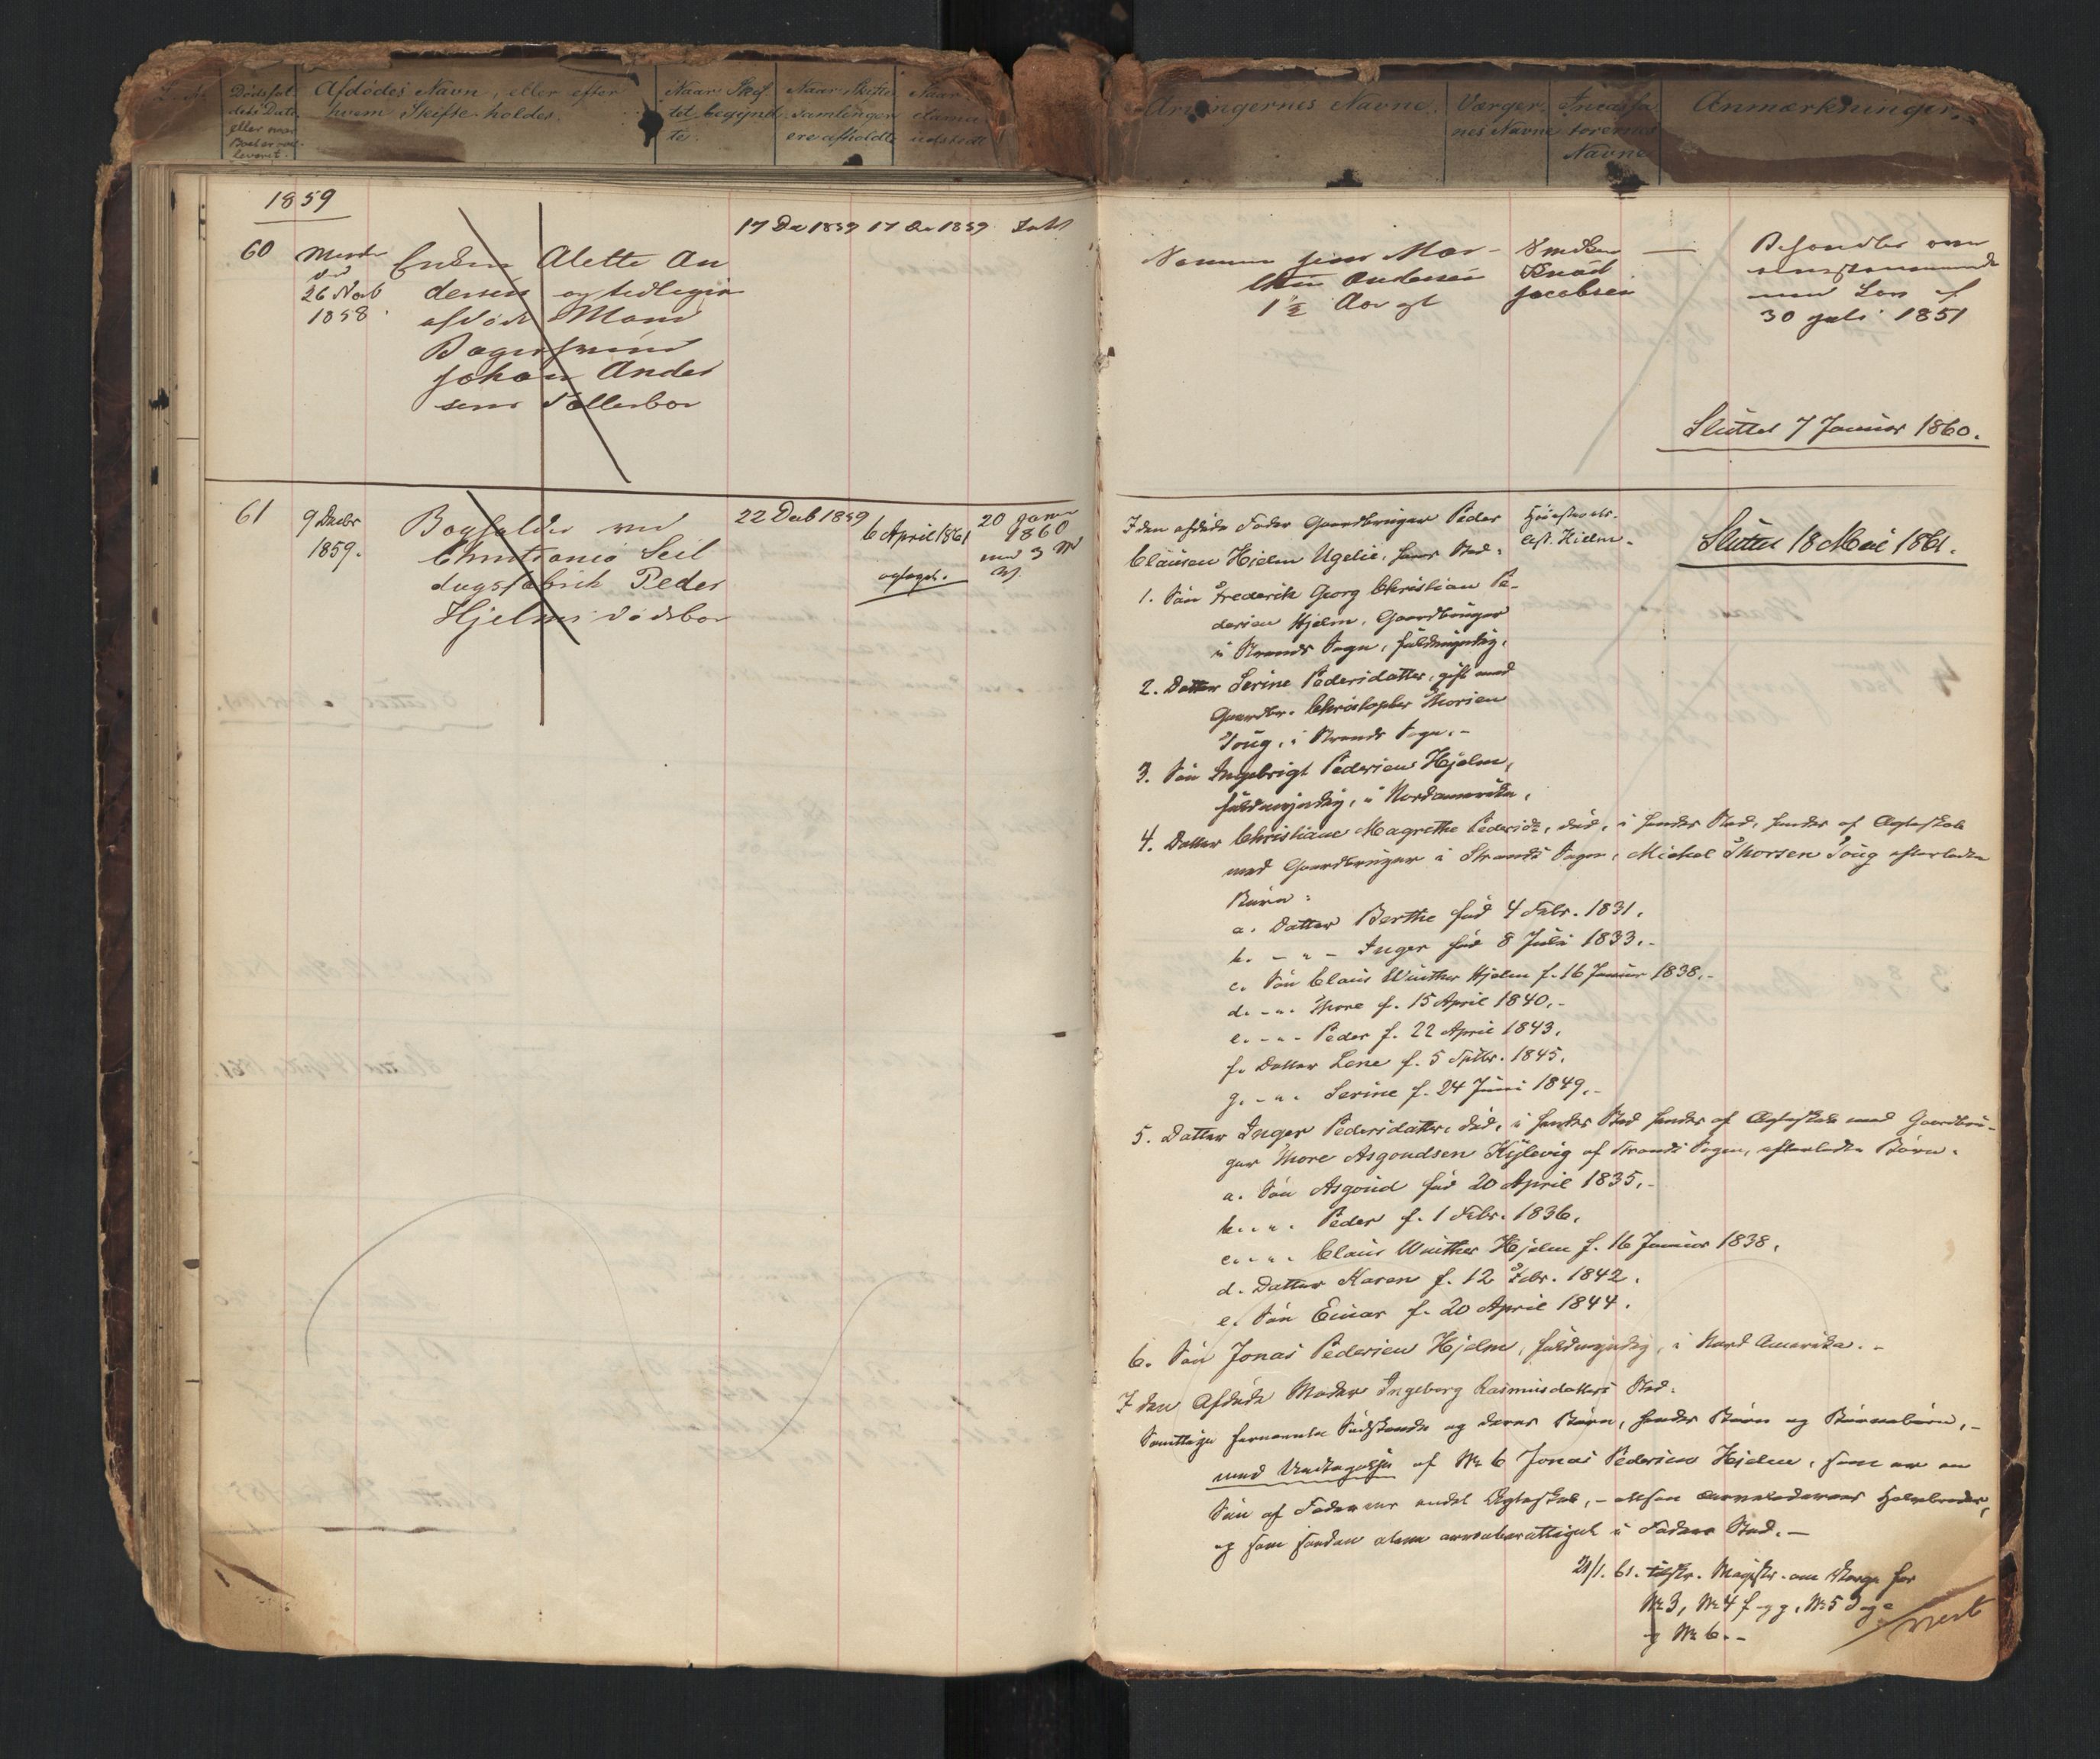 Dødsfal
dets Dato
eller naar
Boet er
leveret.
Afdødes Navn, eller efter
hvem Skifte holdes.
Naar Skif
tet begynd
te.
Naar Skifte
samlinger
ere afholdte
udstedt
Arvingernes Navne.
Værger
nes Navne
Incassa
torernes
Navne
Anmærkninger.
1859
60
26 Novb
1858.
Enken Alette An
dersen og tidligere
afdøde Mand
Bagersvend
Johan Ander
sens Fællesbo
17 De 1859
17 De 1859
Sønnen Jens Mar-
thin Andersen
1 1/2 Aar gl
Smeden
Knud
Jacobsen
Behandles over
med Lov af
30 Juli 1851
Sluttet 7 Januar 1860.
61
9 Decbr
1859.
Bogholder ved
Christiania Seil
dugsfabrik Peder
Hjelms Dødsbo
22 Decb 1859
6 April 1861
optaget.
20 Janr
1860
med 3 M
I den afdøde Fader Gaardbruger Peder
Clausen Hjelm Ugelie, hans Sted:
1. Søn Frederik Georg Christian Pe-
dersen Hjelm, Gaardbruger
i Strands Sogn, fuldmyndig,
2. Datter Serine Pedersdatter, gift med
Gaardbr. Christopher Thorsen
Toug, i Strands Sogn.-
3. Søn Ingebrigt Pedersen Hjelm,
fuldmyndig, i Nordamerika,
4. Datter Christiane Magrethe Pedersdt, død, i hendes Sted, hendes af Ægteskab
med Gaardbruger i Strands Sogn, Michel Thorsen Toug efterladte
Børn:
a. Datter Berthe fød 4 Febr. 1831.
b. - " - Inger fød 8 Juli 1833.-
c. Søn Claus Winther Hjelm f. 16 Januar 1838.-
d. - " - Thore f. 15 April 1840.-
e. - " - Peder f. 22 April 1843.
f. Datter Lene f. 5 Septbr. 1845.
g. - " - Serine f. 24 Juni 1849.-
5. Datter Inger Pedersdatter, død, i hendes Sted hendes af Ægteskab med Gaardbru-
ger Thore Asgoudsen Kijlevig af Strands Sogn, efterladte Børn.
a. Søn Asgoud fød 20 April 1835.-
b. - " - Peder f. 1 Febr. 1836.
c. - " - Claus Winther Hjelm f. 16 Januar 1838.
d. Datter Karen f. 12 Febr. 1842.
e. Søn Einar f. 20 April 1844.
6. Søn Jonas Pedersen Hjelm, fuldmyndig, i Nord Amerika.-
I den Afdøde Moder Ingeborg Rasmusdatters Sted:
Samtlige fornævnte Sødskende og deres Børn, hendes Børn og Børnebørn,-
med Undtagelse af No 6 Jonas Pedersen Hjelm, som er en
Søn af Faderens andet Ægteskab,- altsaa Halvbroder,
og som saadan alene arveberettiget i Faders Sted.-
21/1. 61. tilskr. Magistr. om Værge for
No 3, No 4 f og g, No 5 d og e
og No 6.-
Høiesterets-
Hjelm.
Sluttet 18 Mai 1861.
vert